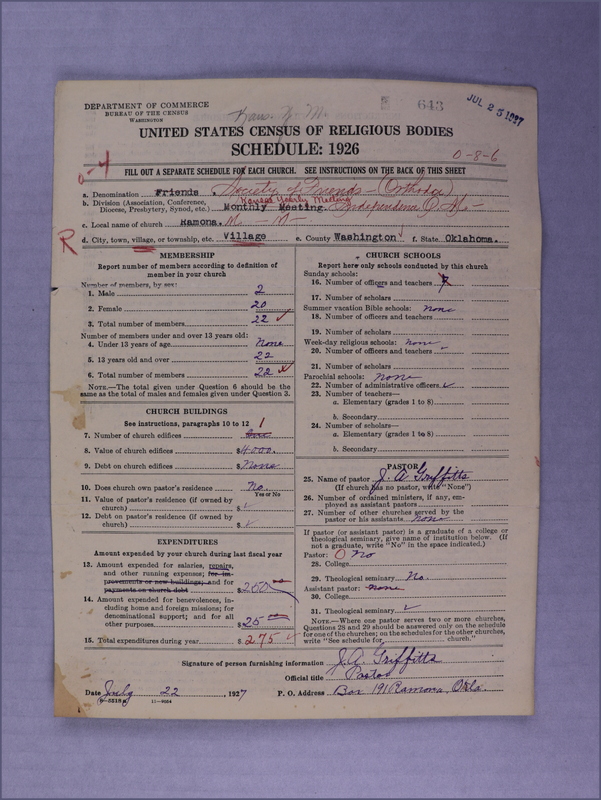 DEPARTMENT OF COMMERCE
BUREAU OF THE CENSUS
WASHINGTON
Kans. Y. M.
643
JUL 25 1927
UNITED STATES CENSUS OF RELIGIOUS BODIES
SCHEDULE: 1926
0-4
0-8-6
FILL OUT A SEPARATE SCHEDULE FOR EACH CHURCH. SEE INSTRUCTIONS ON THE BACK OF THIS SHEET
a. Denomination Friends Society of Friends - (Orthodox)
b. Division (Association, Conference, Kansas Yearly Meeting
Diocese, Presbytery, Synod, etc.) Monthly Meeting. Independence Q. M. -
c. Local name of church Ramona. M - M -
R
d. City, town, village, or township, etc. Village e. County Washington f. State Oklahoma.
MEMBERSHIP
Report number of members according to definition of
member in your church
Number of members, by sex:
1. Male 2
2. Female 20
3. Total number of members 22
Number of members under and over 13 years old:
4. Under 13 years of age None
5. 13 years old and over 22
6. Total number of members 22
NOTE.—The total given under Question 6 should be the
same as the total of males and females given under Question 3.
CHURCH BUILDINGS
See instructions, paragraphs 10 to 12
1
7. Number of church edifices One
8. Value of church edifices $4000.
9. Debt on church edifices $None
10. Does church own pastor's residence? No.
Yes or No
11. Value of pastor's residence (if owned by
church) $
12. Debt on pastor's residence (if owned by
church) $
EXPENDITURES
Amount expended by your church during last fiscal year
13. Amount expended for salaries, repairs,
and other running expense; for im-
provements or new buildings; and for
payments on church debt $250 00
14. Amount expended for benevolences, in-
cluding home and foreign missions; for
denominational support; and for all
other purposes $25 00
15. Total expenditures during year $275
CHURCH SCHOOLS
Report here only schools conducted by this church
Sunday schools:
16. Number of officers and teachers
17. Number of scholars
Summer vacation Bible schools: none
18. Number of officers and teachers
19. Number of scholars
Week-day religious schools: none
20. Number of officers and teachers
21. Number of scholars
Parochial schools: none
22. Number of administrative officers
23. Number of teachers—
a. Elementary (grades 1 to 8)
b. Secondary
24. Number of scholars—
a. Elementary (grades 1 to 8)
b. Secondary
PASTOR
25. Name of pastor J. A Griffitts
(If church has no pastor, write "None")
26. Number of ordained ministers, if any, em-
ployed as assistant pastors
27. Number of other churches served by the
pastor or his assistants none
If pastor (or assistant pastor) is a graduate of a college or
theological seminary, give name of institution below. (If
not a graduate, write "No" in the space indicated.)
Pastor: O No
28. College
29. Theological seminary No.
Assistant pastor: none
30. College
31. Theological seminary
NOTE.—Where one pastor serves two or more churches,
Questions 28 and 29 should be answered only on the schedule
for one of the churches; on the schedules for the other churches,
write "See schedule for church."
Signature of person furnishing information J. A. Griffitts
Official title Pastor
Date July 22, 1927 P. O. Address Box 191 Ramona, Okla.
11—9054